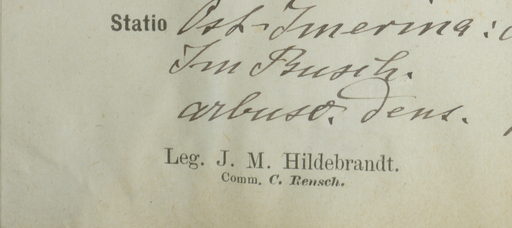 Statio Ost-Imerina:
Im Busch.
arbusc. dens.
Leg. J. M. Hildebrandt.
Comm. C. Rensch.